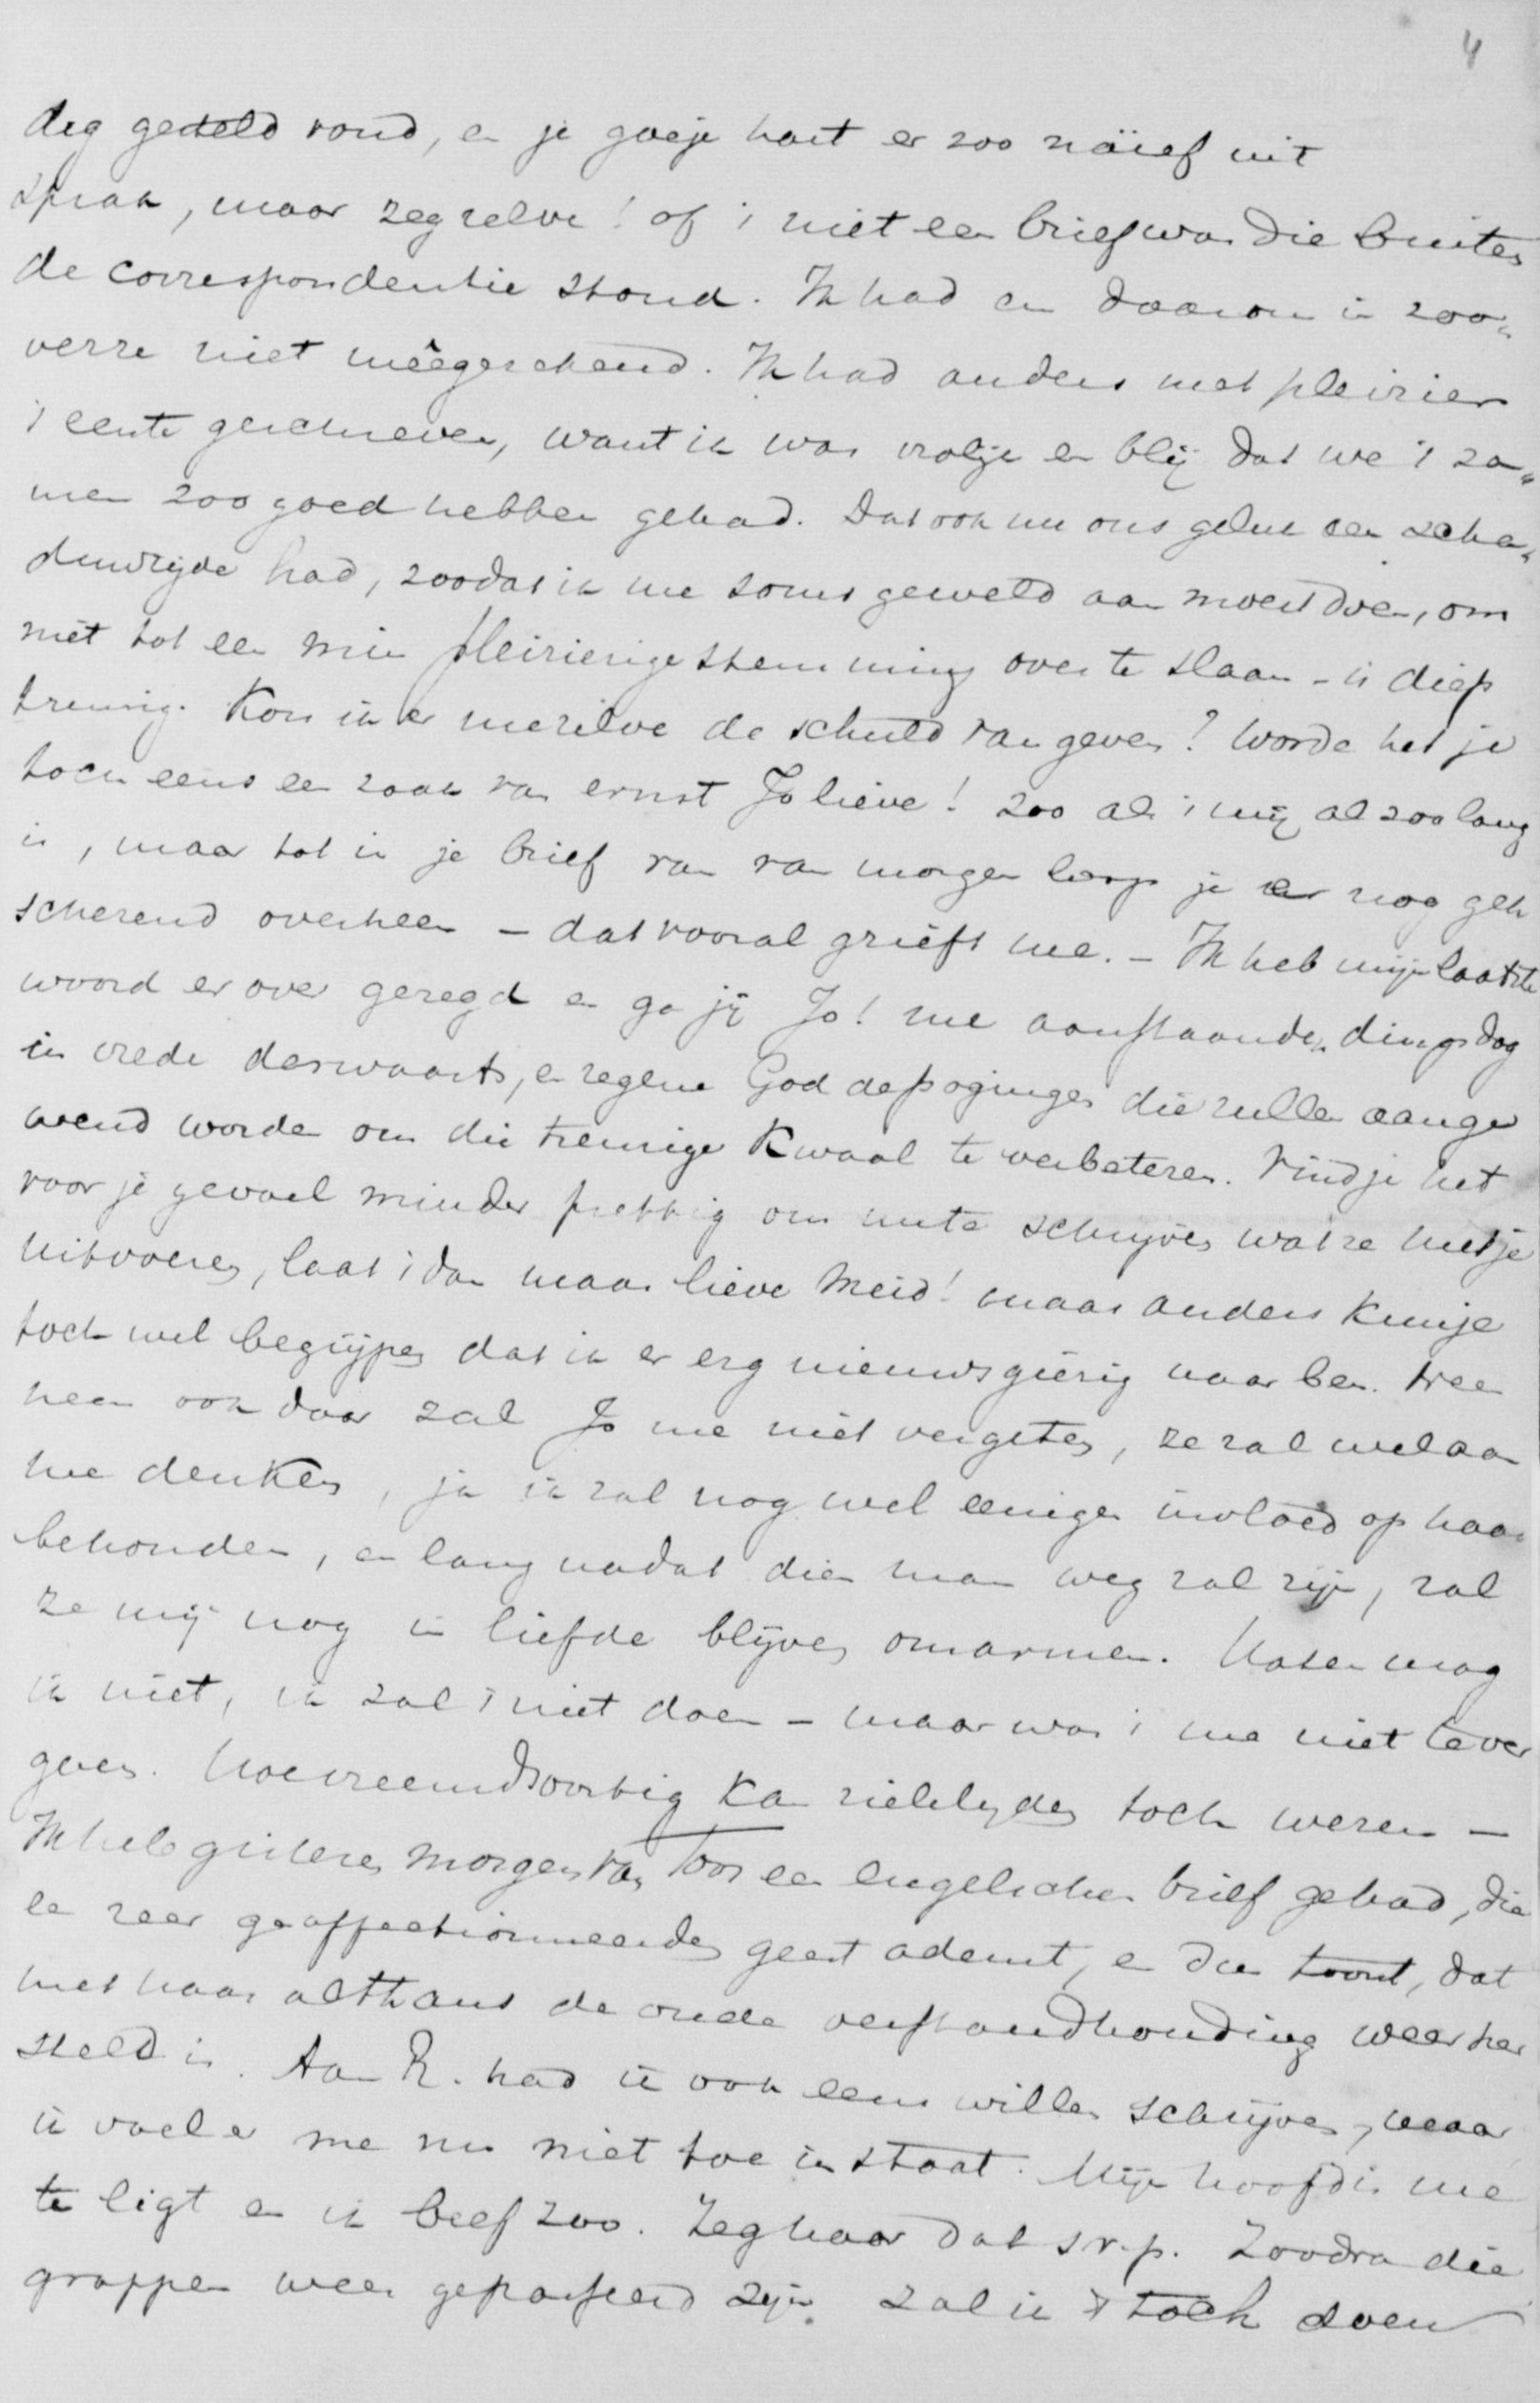 4
dig gesteld vond, en je goeje hart er zoo naïef uit
sprak, maar zeg zelve! of 't niet een brief was die buiten
de correspondentie stond. Ik had en daarom in zoo„
verre niet meêgerekend. Ik had anders met pleizier
't eerste geschreven, want ik was vrolijk en blij dat we 't za„
men zoo goed hebben gehad. Dat ook nu ons geluk een scha„
duwzijde had, zoodat ik me soms geweld aan moest doen, om
niet tot een min pleizierige stemming over te slaan - is diep
treurig. Kon ik er mezelve de schuld van geven? Worde het je
toch eens een zaak van ernst Jo lieve! zoo als 't mij al zoo lang
is, maar tot in je brief van van morgen loop je er nog gek
scherend overheen - dat vooral grieft me. - Ik heb mijn laatste
woord er over gezegd en ga jij Jo! nu aanstaanden dingsdag
in vrede derwaarts, en zegene God de pogingen die zullen aange
wend worden om die treurige kwaal te verbeteren. Vind je het
voor je gevoel minder prettig om me te schrijven wat ze met je
uitvoeren, laat 't dan maar lieve meid! maar anders kun je
toch wel begrijpen dat ik er erg nieuwsgierig naar ben. Neen
neen ook daar zal Jo me niet vergeten, ze zal wel aan
me denken, ja ik zal nog wel eenigen invloed op haar
behouden, en lang nadat die man weg zal zijn, zal
ze mij nog in liefde blijven omarmen. Haten mag
ik niet, ik zal 't niet doen - maar was 't me niet te ver
geven. Hoe vreemdsoortig kan zielelijden toch wezen —
Ik heb gisteren morgen van Toos een engelschen brief gehad, die
een zeer geaffectionneerden geest ademt, en die toont, dat
met haar althans de oude verstandhouding weer her
steld is. Aan R. had ik ook eens willen schrijven, maar
ik voel er me nu niet toe in staat. Mijn hoofd is me
te ligt en ik beef zoo. Zeg haar dat s.v.p. Zoodra die
grappen weer gepasseerd zijn zal ik 't toch doen